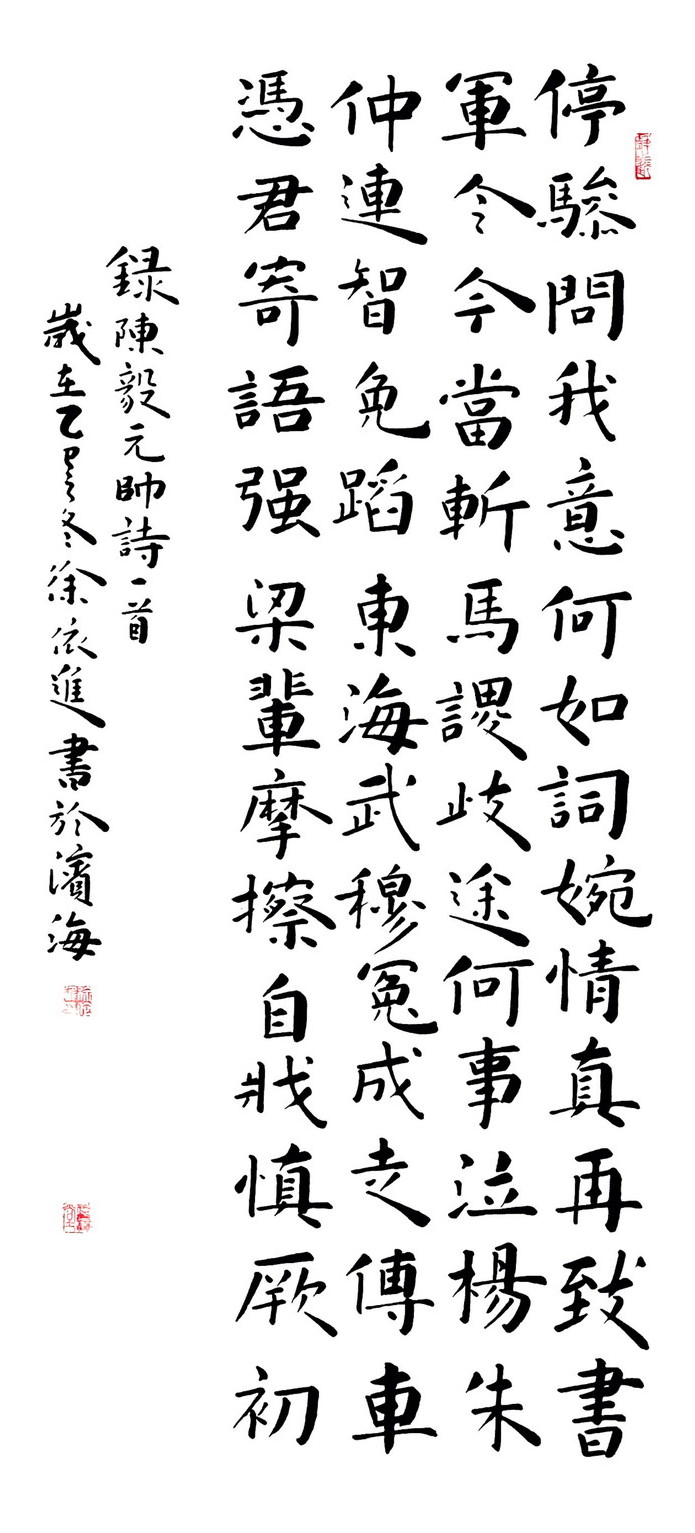 停驂問我意何如詞婉情真再致書
軍令今當斬馬謖歧途何事泣楊朱
仲連智免蹈東海武穆冤成走傳車
憑君寄語强梁輩摩擦自戕慎厥初
録陳毅元帥詩一首
歲在乙巳之冬徐依進書於濱海